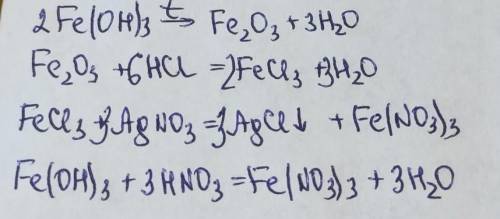 2Fe(OH)₃ →ᵗ Fe₂O₃ + 3H₂O
Fe₂O₃ + 6HCl = 2FeCl₃ + 3H₂O
FeCl₃ + 3AgNO₃ = 3AgCl↓ + Fe(NO₃)₃
Fe(OH)₃ + 3HNO₃ = Fe(NO₃)₃ + 3H₂O